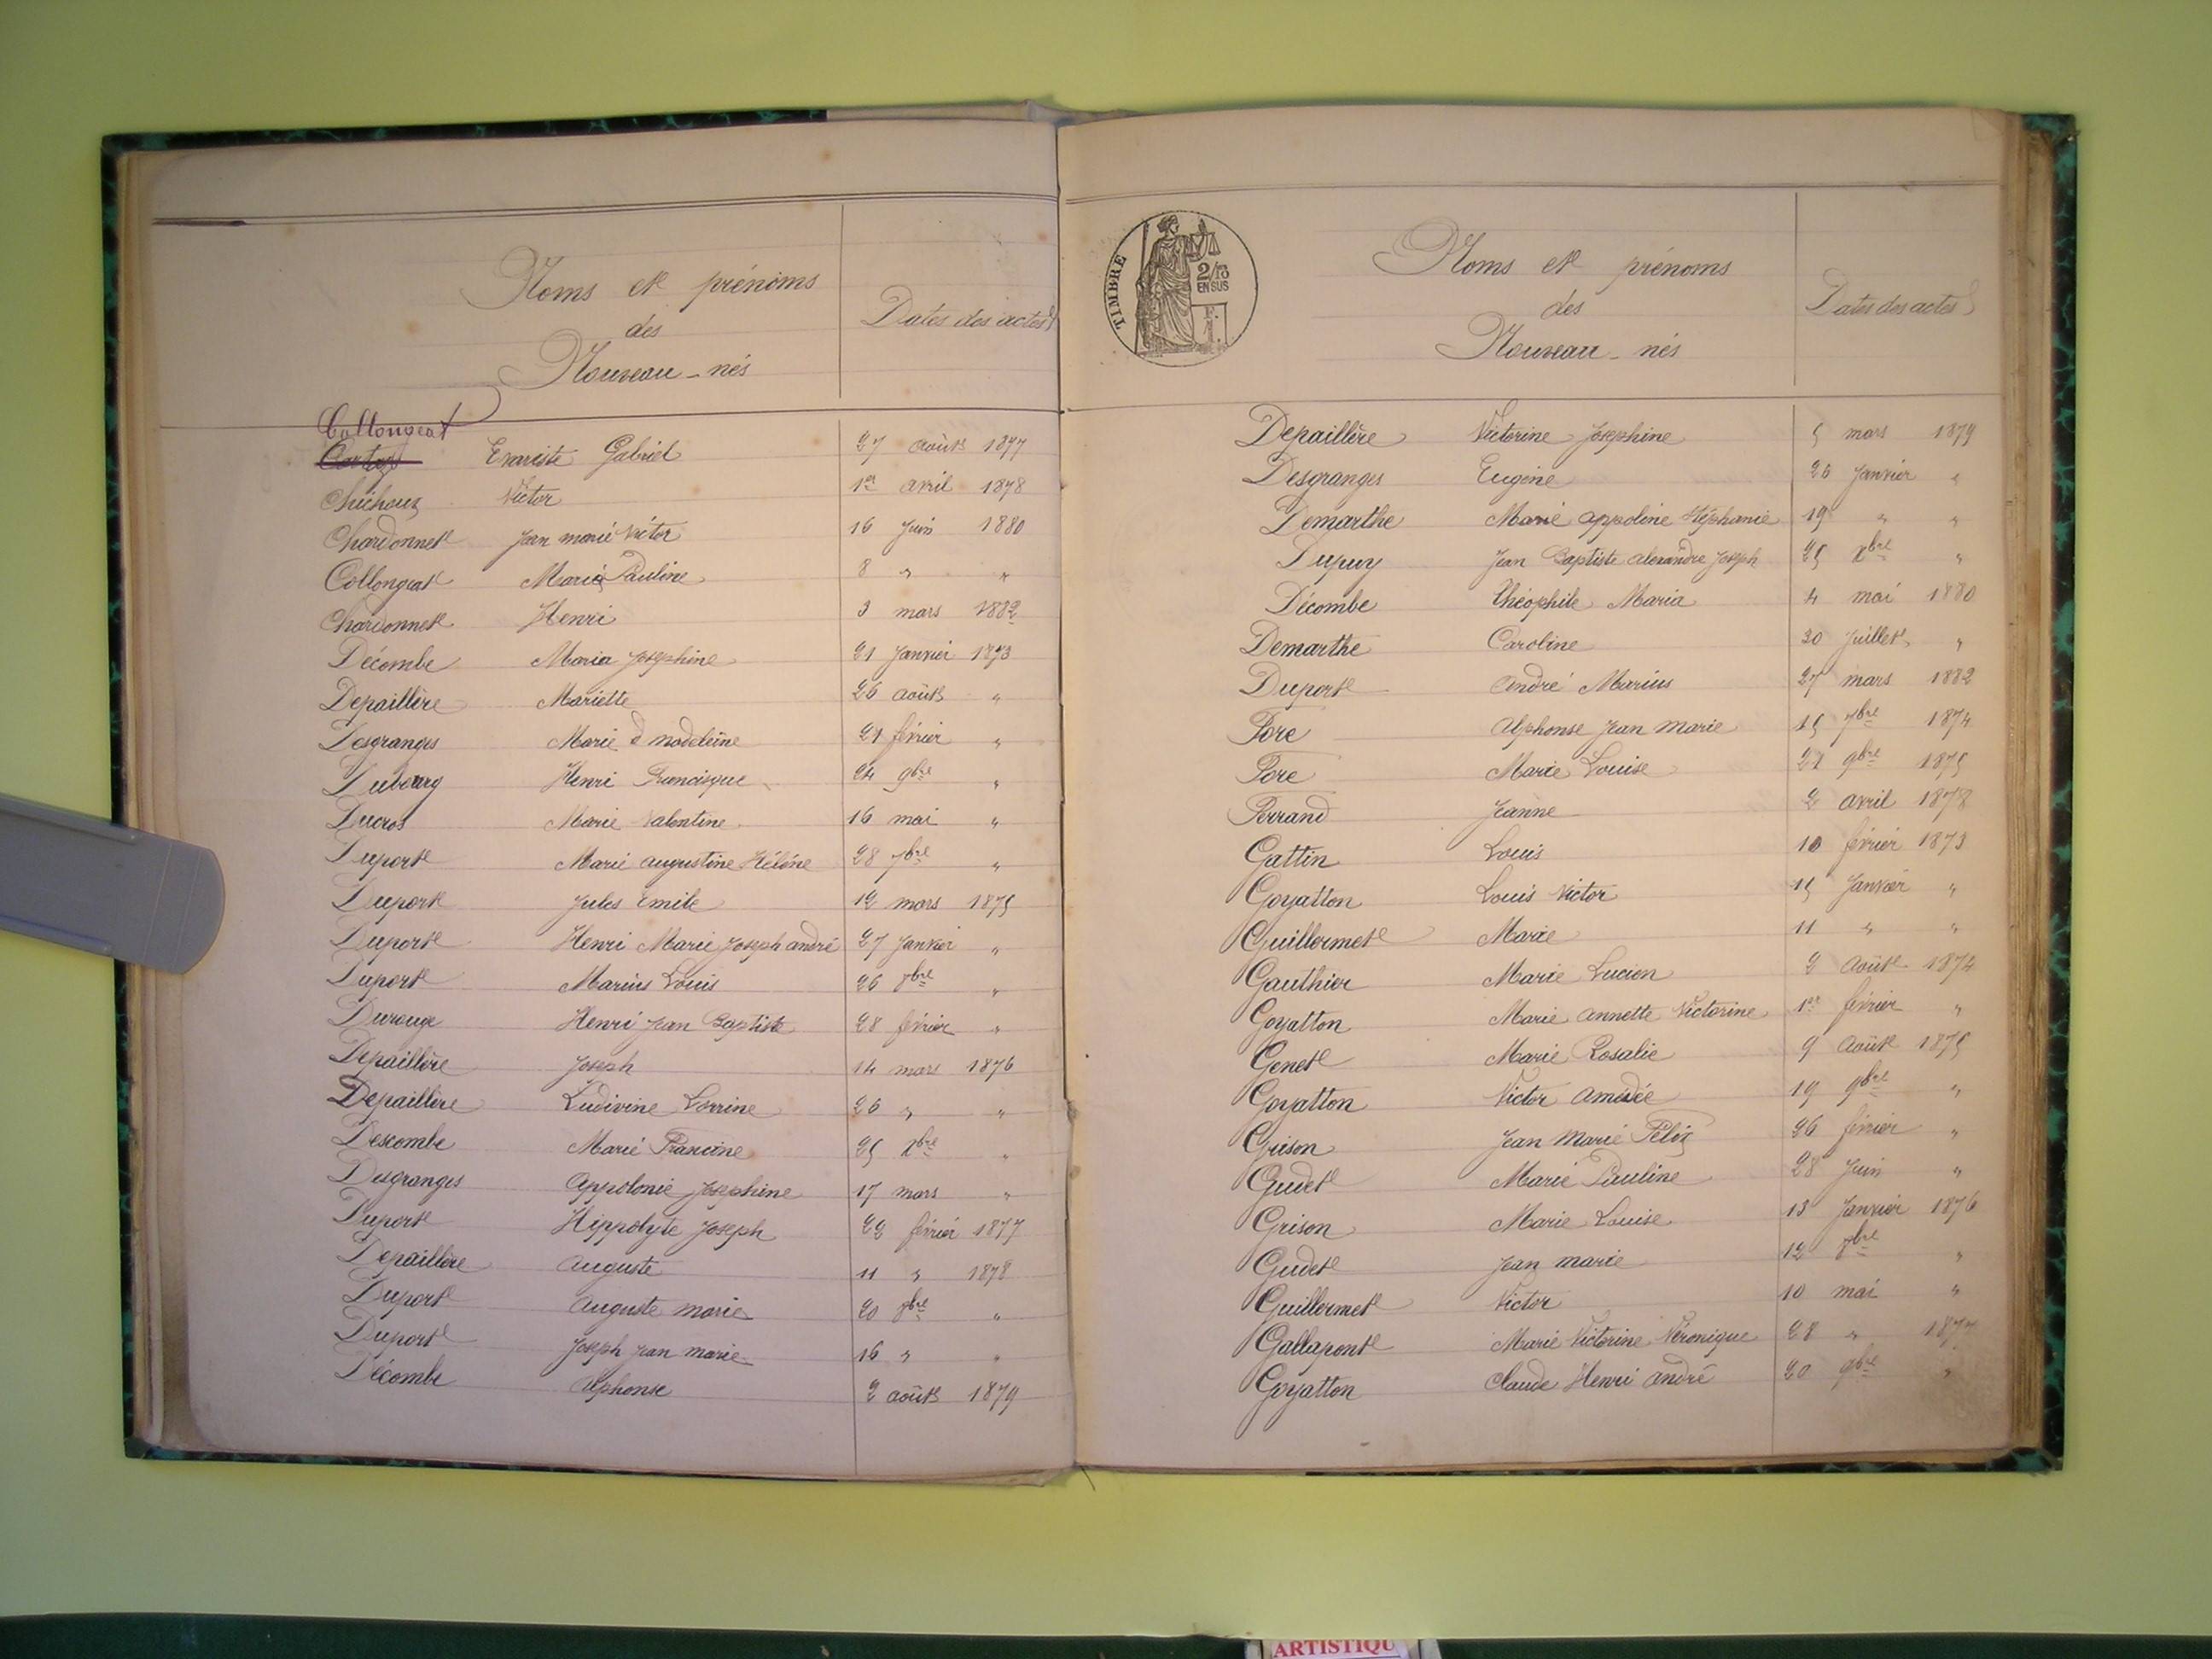 Noms et prénoms
des
Nouveau-nés
Dates des actes
Collongeat
Evariste Gabriel 27 août 1877
Victor 1er avril 1878
Chardonnet Jean marie Victor 16 Juin 1880
Collongeat Marie Pauline 8 " "
Chardonnet Henri 3 mars 1882
Décombe Maria Josephine 21 Janvier 1873
Depaillère Mariette 26 août "
Desgranges Marie madeleine 21 février "
Dubourg Henri Francisque 24 9bre "
Ducros Marie Valentine 16 mai "
Duport Marie augustine Hélène 28 7bre "
Duport Jules Emile 12 mars 1875
Duport Henri Marie Joseph andré 27 Janvier "
Duport Marius Louis 26 8bre "
Durouge Henri Jean Baptiste 28 février "
Depaillère Joseph 14 mars 1876
Depaillère Ludivine 26 " "
Descombe Marie Francine 25 Xbre "
Desgranges Appolonie Josephine 17 mars "
Duport Hippolyte Joseph 22 février 1877
Depaillère Auguste 11 " 1878
Duport Auguste marie 20 8bre "
Duport Joseph Jean marie 16 " "
Décombe Alphonse 2 août 1879
TIMBRE
2/10
EN SUS
Noms et prénoms
des
Nouveau-nés
Dates des actes
Depaillère Victorine Josephine 5 mars 1879
Desgranges Eugène 26 Janvier "
Demarthe Marie appoline Stéphanie 19 " "
Dupuy Jean Baptiste alexandre Joseph 25 Xbre "
Décombe Théophile Maria 4 mai 1880
Demarthe Caroline 30 Juillet "
Duport André Marius 27 mars 1882
Fore Alphonse Jean Marie 15 7bre 1874
Fore Marie Louise 27 9bre 1875
Ferrand Jeanne 2 avril 1878
Gattin Louis 10 février 1873
Goyatton Louis Victor 15 Janvier "
Guillermet Marie 11 " "
Gauthier Marie Lucien 2 Août 1874
Goyatton Marie Annette Victorine 1er février "
Genet Marie Rosalie 9 Août 1875
Goyatton Victor Amédée 19 9bre "
Grison Jean Marie Félix 26 février "
Gudet Marie Pauline 28 Juin "
Grison Marie Louise 13 Janvier 1876
Gudet Jean marie 12 8bre "
Guillermet Victor 10 mai "
Gallapont Marie Victorine Véronique 28 " 1877
Goyatton Claude Henri andré 20 9bre "
ARTISTIQU